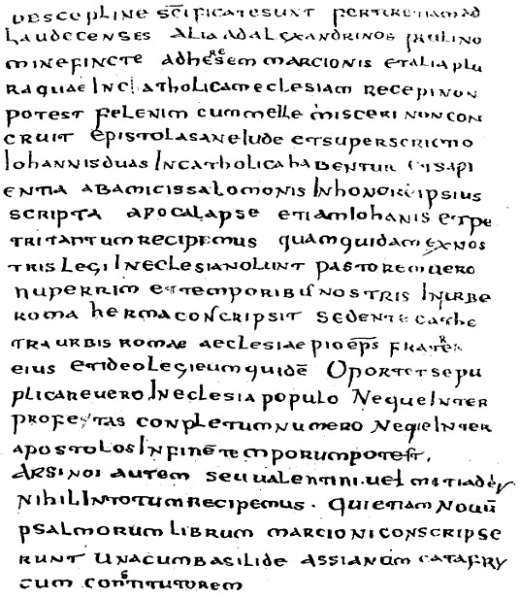 descepline scificate sunt fertur etiam ad
Laudecenses alia ad alexandrinos pauli no
mine fincte ad heresem marcionis et alia plu
ra quae in catholicam eclesiam recepi non
potest fel enim cum melle misceri non con
cruit epistola sane iude et superscrictio
iohannis duas in catholica habentur et sapi
entia ab amicis salomonis in honore ipsius
scripta apocalapse etiam iohanis et pe
tri tantum recipemus quam quidam ex nos
tris legi in eclesia nolunt pastorem uero
nuperrim et temporibus nostris in urbe
roma herma conscripsit sedente cathe
tra urbis romae aeclesiae pio eps frater
eius et ideo legi eum quidē Oportet se pu
plicare uero In eclesia populo Neque inter
profestas conpletum numero Neque Inter
apostolos In finē temporum potest.
Arsinoi autem seu ualentini. uel mitiadeis
nihil In totum recipemus. Qui etiam Nouū
psalmorum librum marcioni conscripse
runt Una cum basilide assianum catafry
cum constitutorem